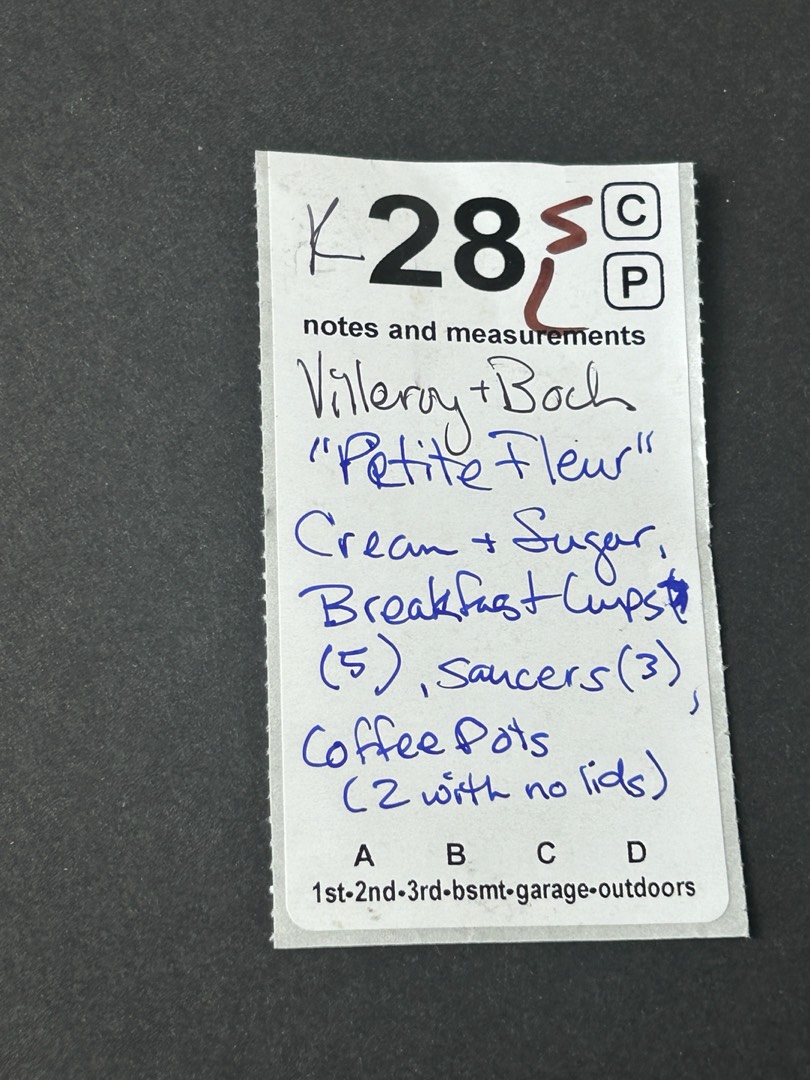 K 28 S C
L P
notes and measurements
Villeroy + Boch
"Petite Fleur"
Cream + Sugar,
Breakfast Cups
(5), saucers (3),
Coffee Pots
(2 with no lids)
A B C D
1st•2nd•3rd•bsmt•garage•outdoors